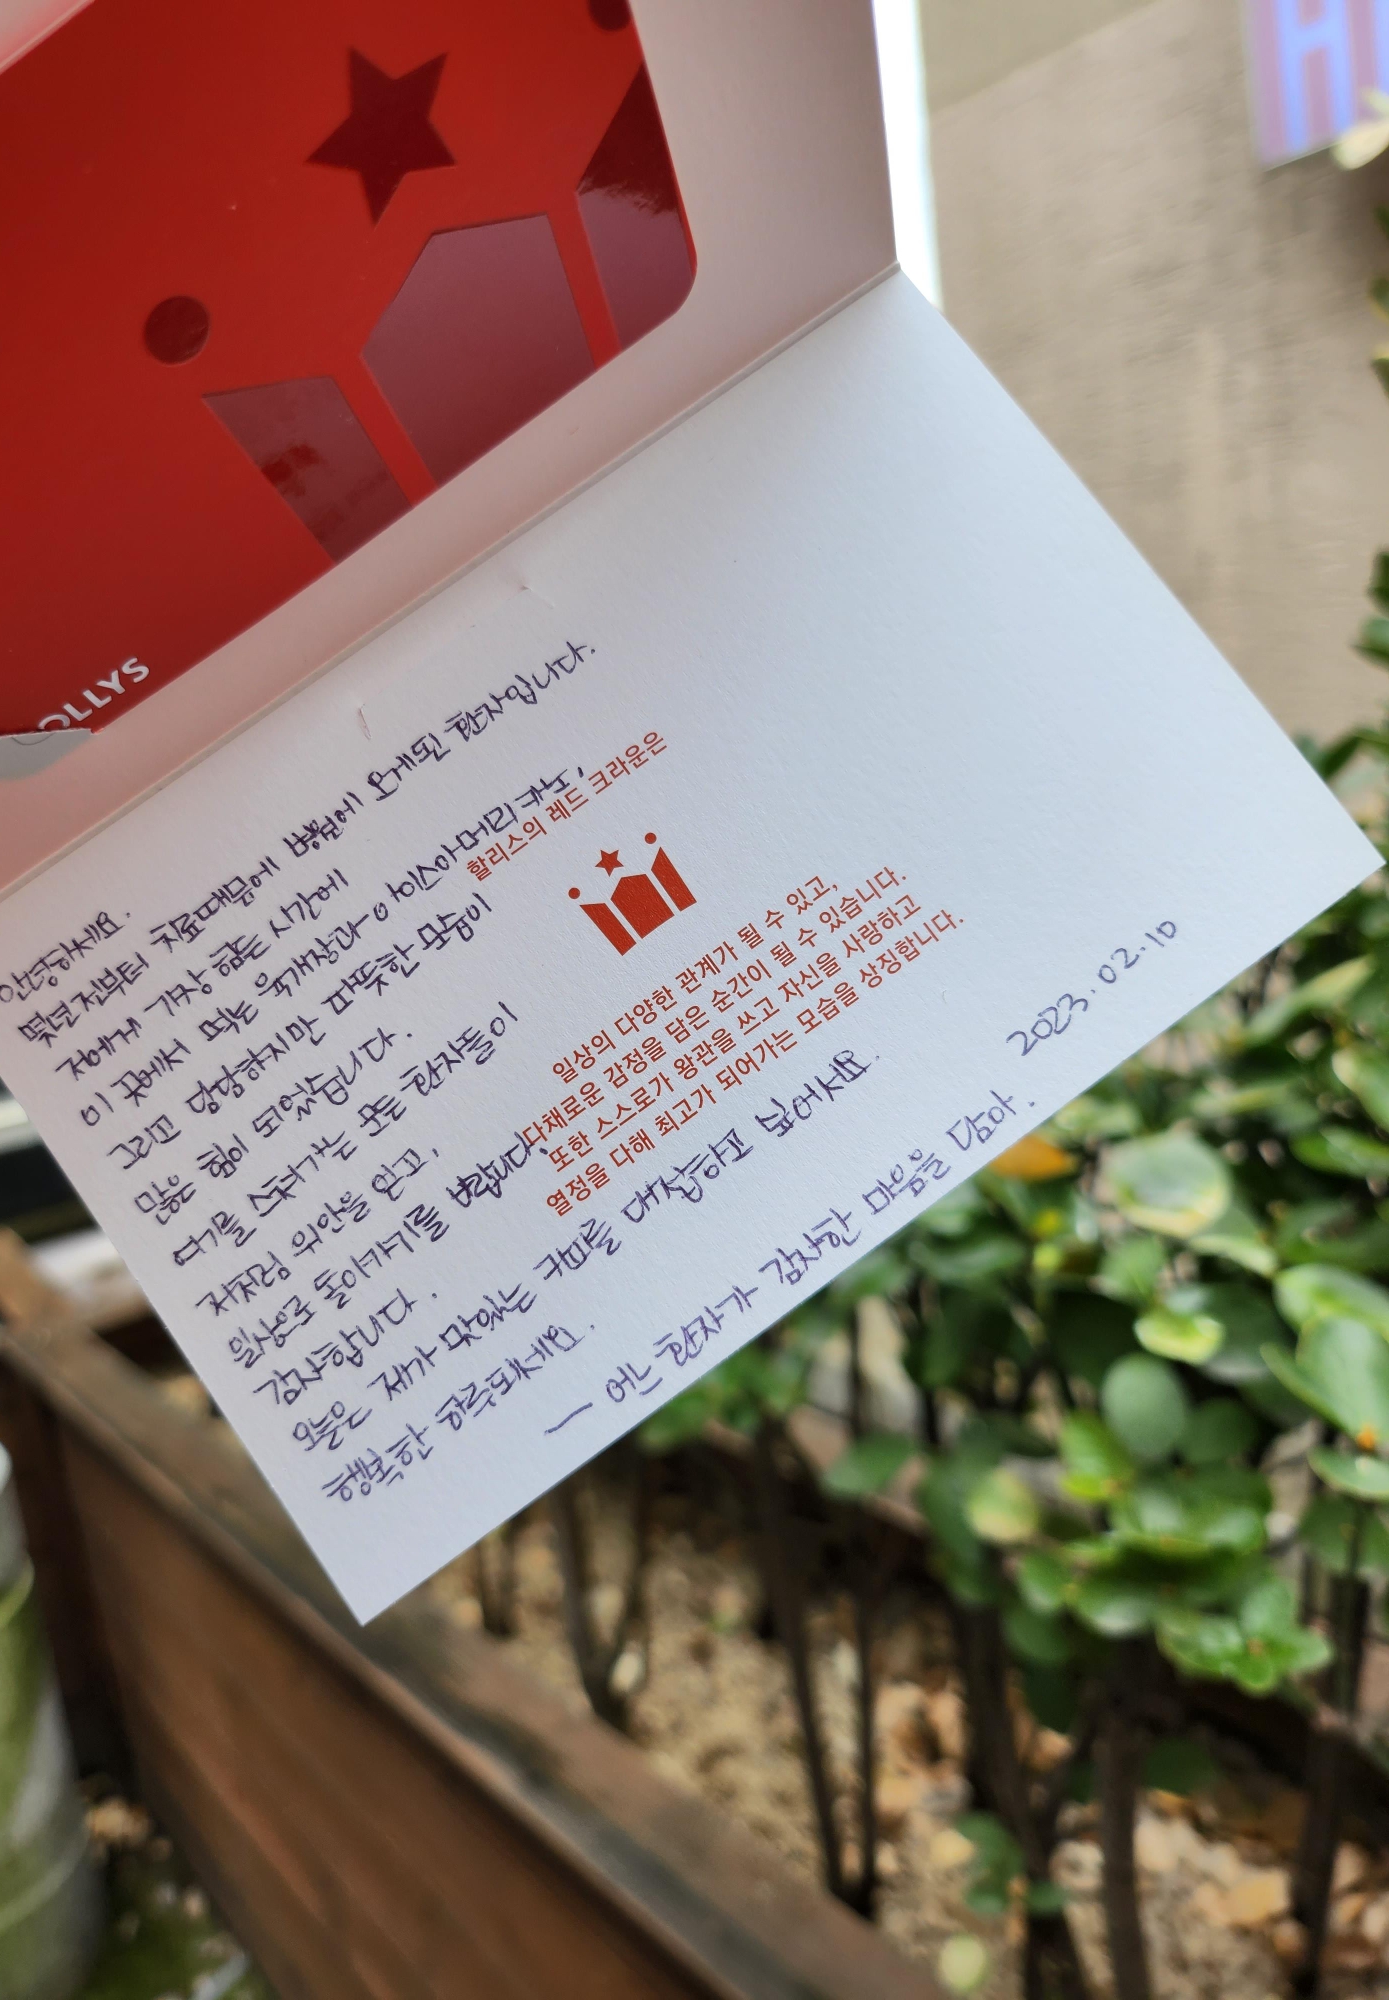 OLLYS
안녕하세요.
몇년전부터 치료때문에 병원에 오게된 환자입니다.
저에게 가장 힘든 시간에
이 곳에서 먹는 육개장과 아이스아메리카노,
그리고 당당하지만 따뜻한 모습이
많은 힘이 되었습니다.
여기를 스쳐가는 모든 환자들이
저처럼 위안을 얻고,
일상으로 돌아가기를 바랍니다.
감사합니다.
오늘은 제가 맛있는 커피를 대접하고 싶어서요.
행복한 하루되세요.
— 어느 환자가 감사한 마음을 담아.
2023.02.10
할리스의 레드 크라운은
일상의 다양한 관계가 될 수 있고,
다채로운 감정을 담은 순간이 될 수 있습니다.
또한 스스로가 왕관을 쓰고 자신을 사랑하고
열정을 다해 최고가 되어가는 모습을 상징합니다.
H